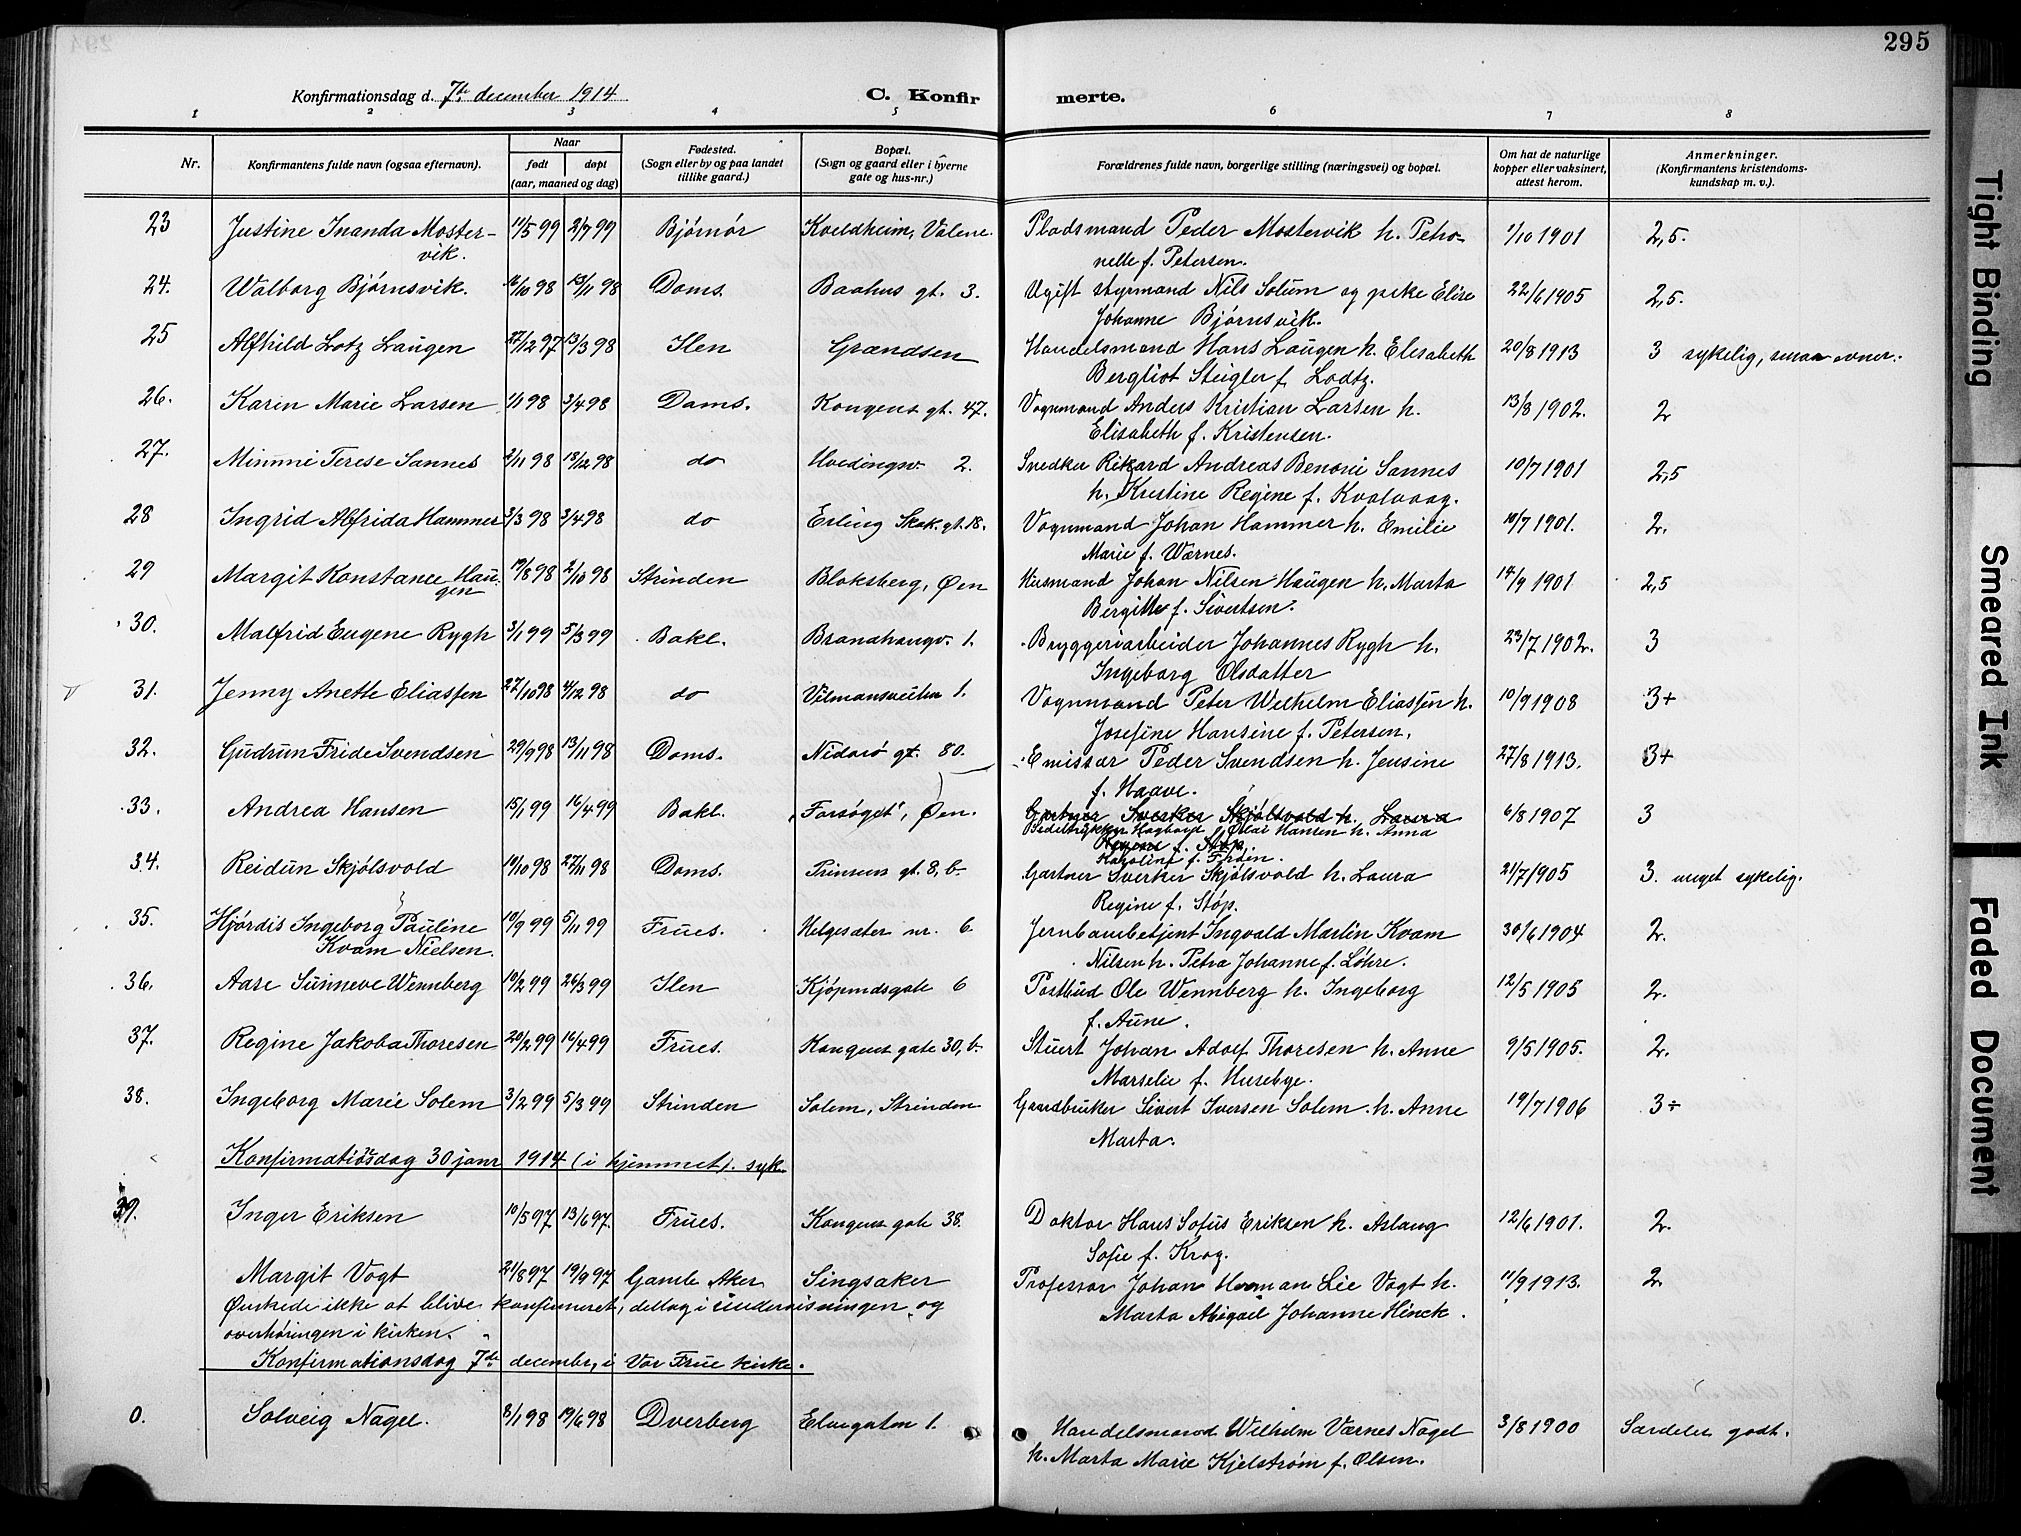 295
Konfirmationsdag d. 7de december 1914
C. Konfirmerte.
1 2 3 4 5 6 7 8
Nr. Konfirmantens fulde navn (ogsaa efternavn). Naar født døpt (aar, maaned og dag) Fødested. (Sogn eller by og paa landet tillike gaard.) Bopæl. (Sogn og gaard eller i byerne gate og hus-nr.) Forældrenes fulde navn, borgerlige stilling (næringsvei) og bopæl. Om hat de naturlige kopper eller vaksinert, attest herom. Anmerkninger. (Konfirmantens kristendoms-kundskap m. v.).
23 Justine Inanda Moster- 11/5 99 2/7 99 Bjørnør Kveldheim, Valene. Pladsmand Peder Mostervik h. Petro- 1/10 1901 2,5.
vik. nelle f. Petersen.
24. Walborg Bjørnsvik. 16/10 98 13/11 98 Doms. Baahus gt. 3. Ugift styrmand Nils Solum og pike Elise 22/6 1905 2,5.
Johanne Bjørnsvik.
25 Alfhild Lotz Laugen 27/12 97 13/3 98 Ilen Grændsen Handelsmand Hans Laugen h. Elisabeth 20/8 1913 3 sykelig, smaa evner.
Bergliot Steigler f. Lodtz.
26. Karin Marie Larsen 1/1 98 3/4 98 Doms. Kongens gt. 47. Vognmand Anders Kristian Larsen h. 13/8 1902. 2
Elisabeth f. Kristensen.
27. Mimmi Terese Sannes 2/11 98 18/12 98 do Hvedingsv. 2. Snedker Rikard Andreas Benoni Sannes 10/7 1901 2,5
h. Kristine Regine f. Kvalvaag.
28 Ingrid Alfrida Hammer 3/3 98 3/4 98 do Erling Skak. gt. 18. Vognmand Johan Hammer h. Emilie 10/7 1901. 2.
Marie f. Wærnes.
29 Margit Konstance Hau- 19/8 98 2/10 98 Strinden Bloksberg, Øen Husmand Johan Nilsen Haugen h. Marta 14/9 1901 2,5
gen Bergitte f. Sivertsen.
30. Malfrid Eugene Rygh 3/1 99 5/3 99 Bakl. Brandhaugv. 1. Bryggeriarbeider Johannes Rygh h. 23/7 1902. 3
Ingeborg Olsdatter
31. Jenny Anette Eliassen 27/10 98 4/12 98 do Vilmansveiten 1. Vognmand Peter Wilhelm Eliassen h. 10/9 1908 3+
Josefine Hansine f. Petersen.
32. Gudrun Fride Svendsen 29/9 98 13/11 98 Doms. Nidarø gt. 80. Emissær Peder Svendsen h. Jensine 27/8 1913. 3+
f. Haave.
33. Andrea Hansen 15/1 99 16/4 99 Bakl. "Forsøget", Øen. Gartner Sverker Skjølsvold h. Laura 6/8 1907 3
Hagbart Olai Hansen h. Anna
Regine f. Støp.
Karoline f.
34. Reidun Skjølsvold 19/10 98 27/11 98 Doms. Prinsens gt. 8, b. Gartner Sverker Skjølsvold h. Laura 21/7 1905 3. meget sykelig.
Regine f. Støp.
35. Hjørdis Ingeborg Pauline 10/9 99 5/11 99 Frues. Helgesæter nr. 6 Jernbanebetjent Ingvald Martin Kvam 30/6 1904 2.
Kvam Nielsen. Nilsen h. Petra Johanne f. Løhre.
36. Aase Sunneve Wennberg 19/2 99 26/3 99 Ilen Kjøpmdsgate 6 Postbud Ole Wennberg h. Ingeborg 12/5 1905 2.
f. Aune.
37. Regine Jakoba Thoresen 20/2 99 16/4 99 Frues. Kongens gate 30, b. Stuert Johan Adolf Thoresen h. Anne 9/5 1905. 2.
Marselie f. Husebye.
38. Ingeborg Marie Solem 3/2 99 5/3 99 Strinden Solem, Strinden Gaardbruker Sivert Iversen Solem h. Anne 19/7 1906 3÷
Marta.
Konfirmationsdag 30 janr 1914 (i hjemmet). syk.
39. Inger Eriksen 10/5 97 13/6 97. Frues. Kongens gate 38. Doktor Hans Sofus Eriksen h. Aslaug 12/6 1901. 2.
Sofie f. Krog.
Margit Vogt 21/8 97 19/9 97 Gamle Aker Singsaker Professor Johan Herman Lie Vogt h. 11/9 1913. 2
Ønskede ikke at blive konfirmeret, deltog i undervisningen og Marta Abigael Johanne Hinck.
overhøringen i kirken.
Konfirmationsdag 7de december, i Vor Frue kirke.
0. Solveig Nagel. 8/1 98 19/6 98 Dverberg Elvegaten 1. Handelsmand Wilhelm Værnes Nagel 3/8 1900 Særdeles godt.
h. Marta Marie Kjelstrøm f. Olsen.
Tight Binding
Smeared Ink
Faded Document